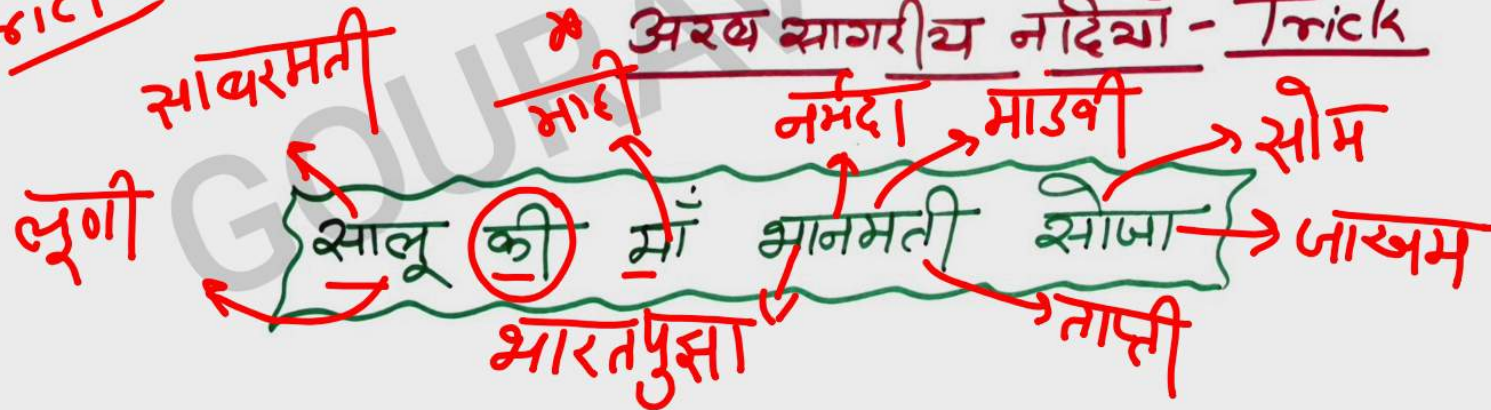 अरब सागरीय नदियाँ - Trick
साबरमती
माही
नर्मदा
माडवी
सोम
लूणी
सालू की माँ भानमती सोजा
जाखम
भारतपुझा
ताप्ती
GOURAV